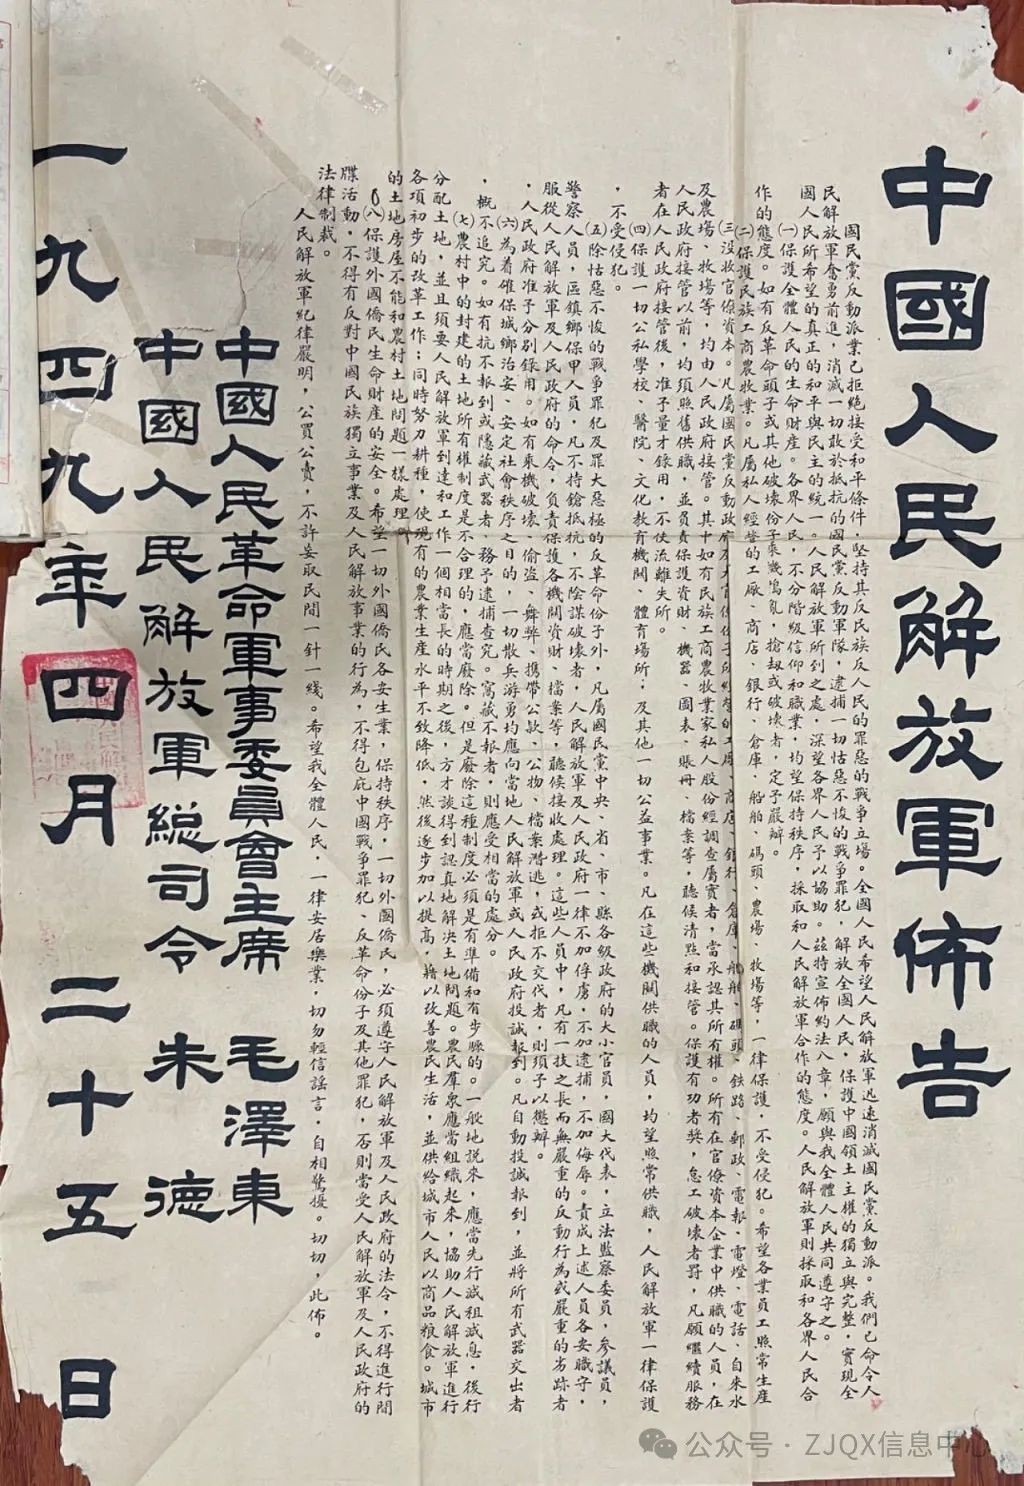 中國人民解放軍佈告
國民黨反動派業已拒絕接受和平條件，堅持其反民族反人民的罪惡的戰爭立場。全國人民希望人民解放軍迅速消滅國民黨反動派。我們已命令人
民解放軍奮勇前進，消滅一切敢於抵抗的國民黨反動軍隊，逮捕一切怙惡不悛的戰爭罪犯，解放全國人民，保護中國領土主權的獨立與完整，實現全
國人民所希望的真正的和平與民主的統一。人民解放軍所到之處，深望各界人民予以協助。茲特宣佈約法八章，願與我全體人民共同遵守之。
㈠保護全體人民的生命財產。各界人民，不分階級信仰和職業，均望保持秩序，採取和人民解放軍合作的態度。人民解放軍則採取和各界人民合
作的態度。如有反革命頭子或其他破壞份子乘機搗亂，搶劫或破壞者，定予嚴辦。
㈡保護民族工商農牧業。凡屬私人經營的工廠、商店、銀行、倉庫、船舶、碼頭、農場、牧場等，一律保護，不受侵犯。希望各業員工照常生產
㈢沒收官僚資本。凡屬國民黨反動政 所經營的工廠、商店、銀行、倉庫、船舶、碼頭、鐵路、郵政、電報、電燈、電話、自來水
及農場、牧場等，均由人民政府接管。其中如有民族工商農牧業家私人股份經調查屬實者，當承認其所有權。所有在官僚資本企業中供職的人員，在
人民政府接管以前，均須照舊供職，並負責保護資財、機器、圖表、賬冊、檔案等，聽候清點和接管。保護有功者獎，怠工破壞者罰，凡願繼續服務
者在人民政府接管後，准予量才錄用，不使流離失所。
㈣保護一切公私學校、醫院、文化教育機關、體育場所，及其他一切公益事業。凡在這些機關供職的人員，均望照常供職，人民解放軍一律保護
，不受侵犯。
㈤除怙惡不悛的戰爭罪犯及罪大惡極的反革命份子外，凡屬國民黨中央、省、市、縣各級政府的大小官員，國大代表，立法監察委員，參議員，
警察人員，區鎮鄉保甲人員，凡不持鎗抵抗，不陰謀破壞者，人民解放軍及人民政府一律不加俘虜，不加逮捕，不加侮辱。責成上述人員各安職守，
服從人民解放軍及人民政府的命令，負責保護各機關資財、檔案等，聽候接收處理。這些人員中，凡有一技之長而無嚴重的反動行為或嚴重的劣跡者
，人民政府准予分別錄用。如有乘機破壞、偷盜、舞弊、携帶公款、公物、檔案潛逃，或拒不交代者，則須予以懲辦。
㈥為着確保城鄉治安、安定社會秩序之目的，一切散兵游勇均應向當地人民解放軍或人民政府投誠報到。凡自動投誠報到，並將所有武器交出者
，概不追究。如有抗不報到或隱藏武器者，務予逮捕查究。窩藏不報者，則應受相當的處分。
㈦農村中的封建的土地所有權制度是不合理的，應當廢除。但是廢除這種制度必須是有準備和有步驟的。一般地說來，應當先行減租減息，後行
分配土地，並且須要人民解放軍到達和工作一個相當長的時期之後，方才談得到認真地解決土地問題。農民羣衆應當組織起來，協助人民解放軍進行
各項初步的改革工作；同時努力耕種，使現有的農業生產水平不致降低，然後逐步加以提高，藉以改善農民生活，並供給城市人民以商品粮食。城市
的土地房屋不能和農村土地問題一樣處理。
㈧保護外國僑民生命財產的安全。希望一切外國僑民各安生業，保持秩序，一切外國僑民，必須遵守人民解放軍及人民政府的法令，不得進行間
諜活動，不得有反對中國民族獨立事業及人民解放事業的行為，不得包庇中國戰爭罪犯、反革命份子及其他罪犯，否則當受人民解放軍及人民政府的
法律制裁。
人民解放軍紀律嚴明，公買公賣，不許妄取民間一針一綫。希望我全體人民，一律安居樂業，切勿輕信謠言，自相驚擾。切切，此佈。
中國人民革命軍事委員會主席 毛澤東
中國人民解放軍總司令 朱 德
一九四九年四月二十五日
公众号 · ZJQX信息中心